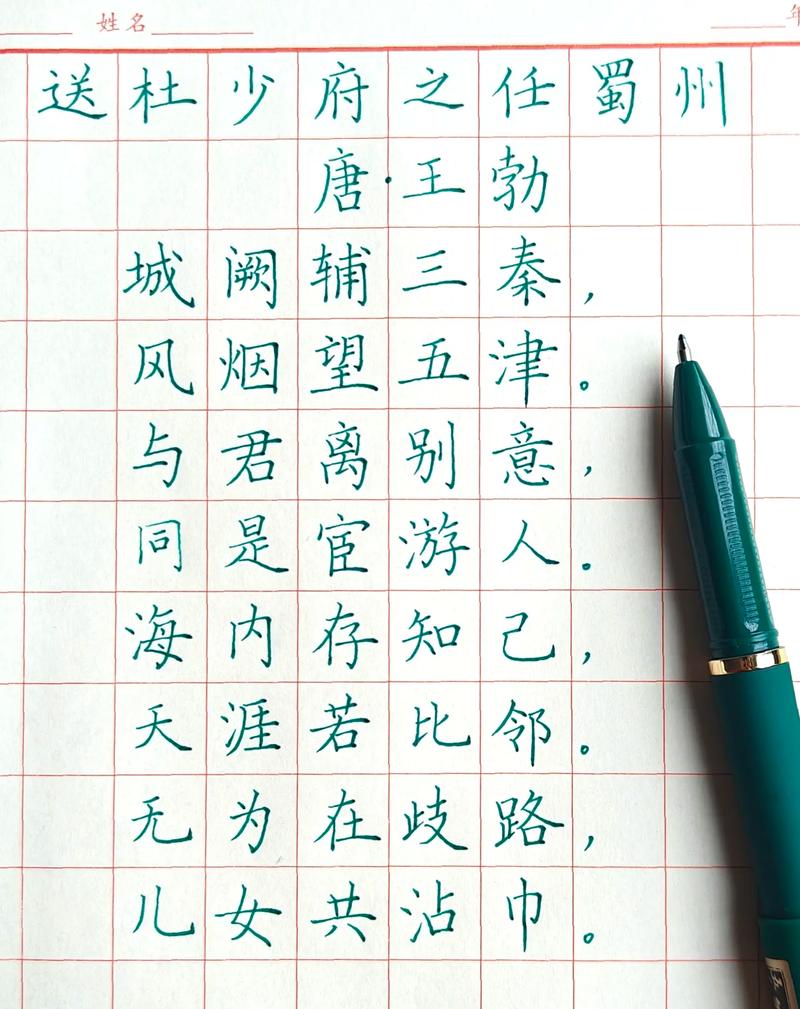 姓名 年
送杜少府之任蜀州
唐·王勃
城阙辅三秦，
风烟望五津。
与君离别意，
同是宦游人。
海内存知己，
天涯若比邻。
无为在歧路，
儿女共沾巾。